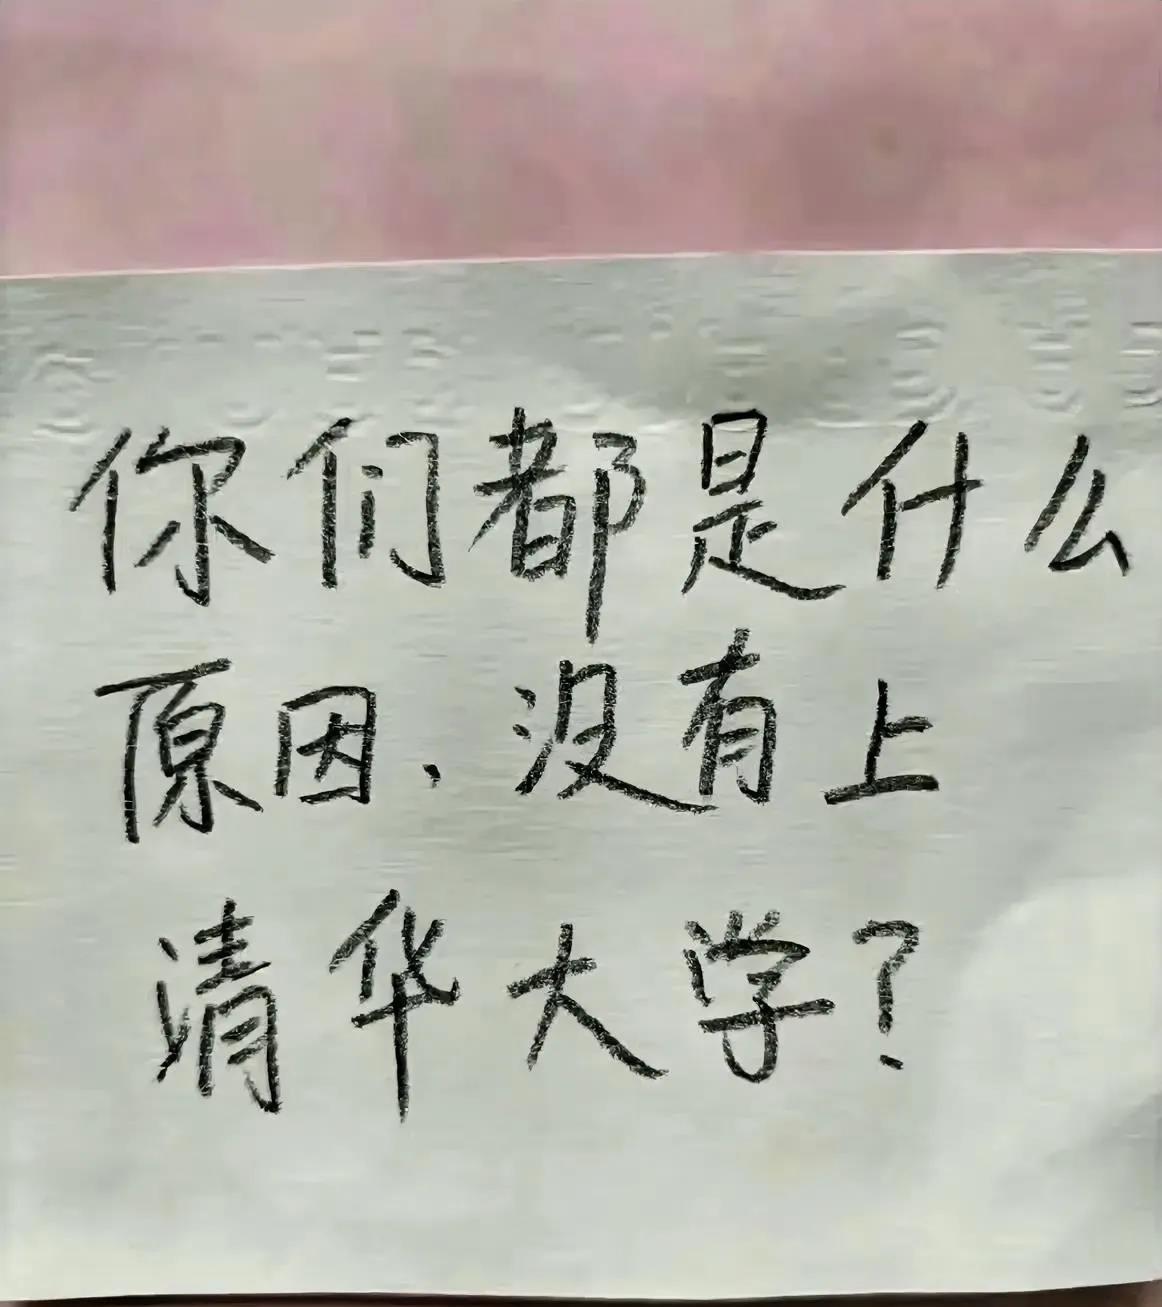 你们都是什么
原因.没有上
清华大学?